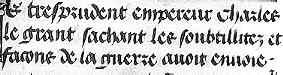 Le tresprudent empereur Charles
le grant sachant les soubtillitez et
facons de la guerre auoit enuoie